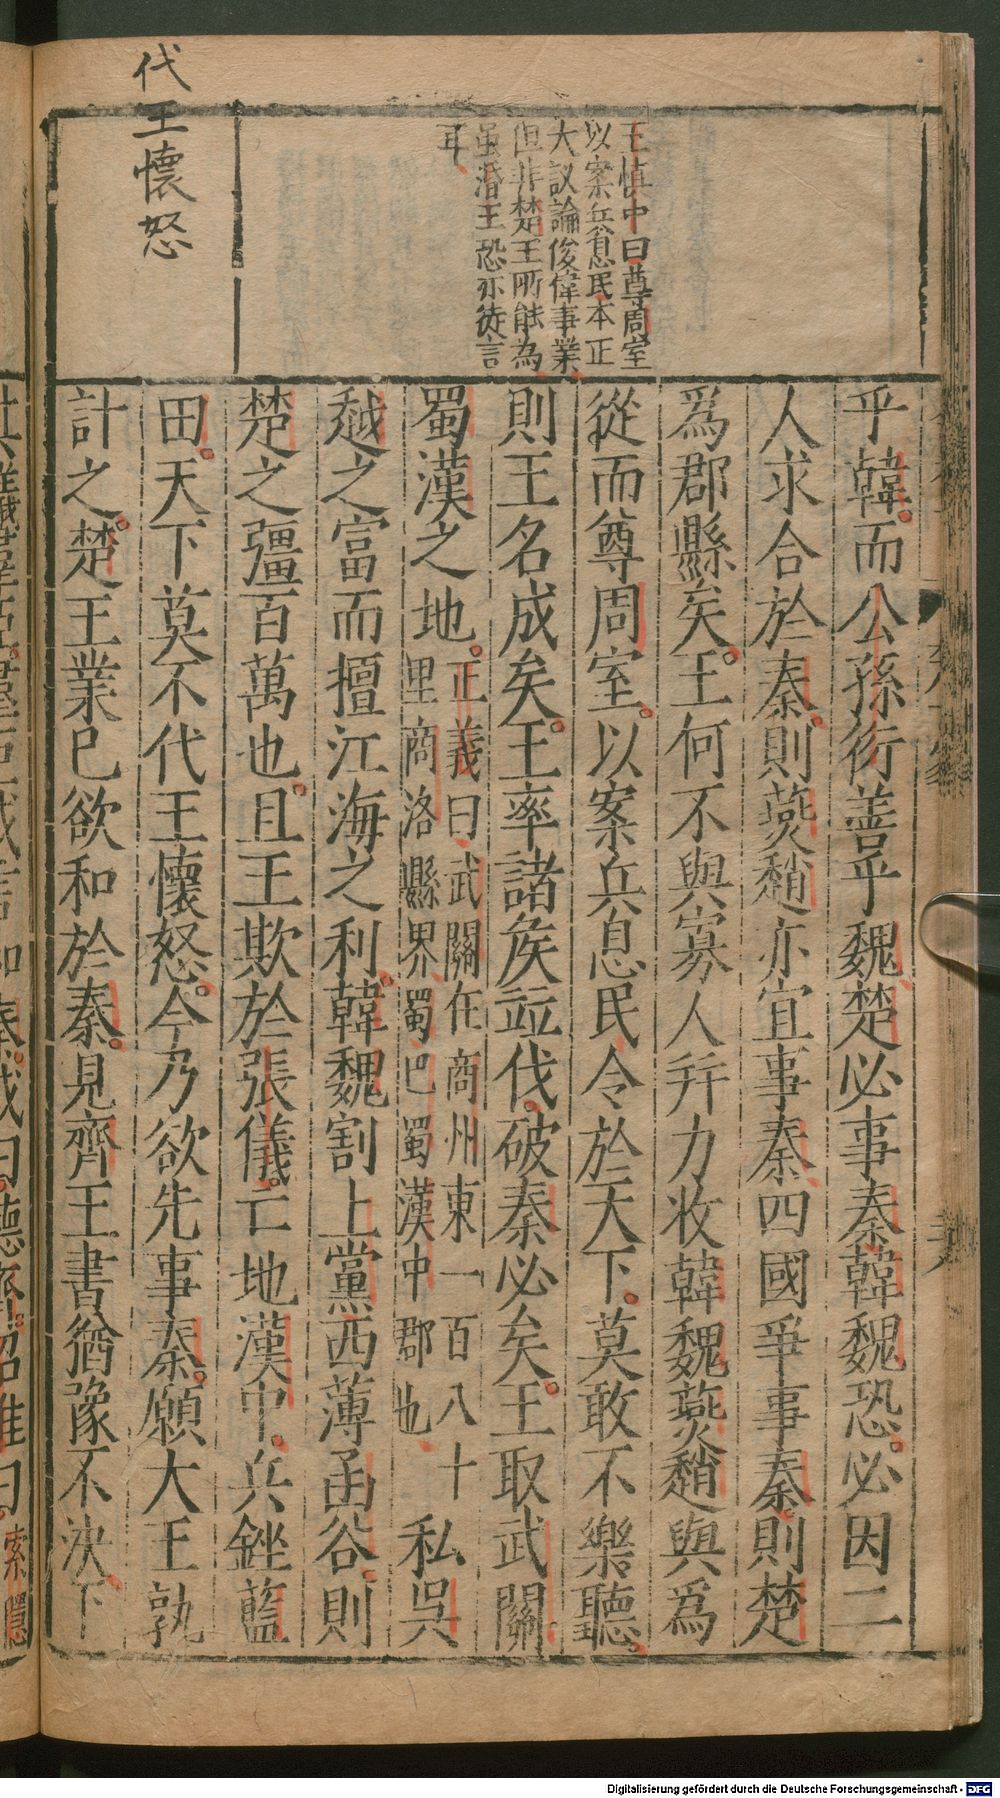 代王懷怒
王慎中曰尊周室
以案兵息民本正
大議論俊偉事業
但非楚王所能為
虽湣王恐亦徒言
耳
乎韓而公孫衍善乎魏楚必事秦韓魏恐必因二
人求合於秦則燕趙亦宜事秦四國爭事秦則楚
爲郡縣矣王何不與寡人幷力收韓魏燕趙與爲
從而尊周室以案兵息民令於天下莫敢不樂聽
則王名成矣王率諸矦竝伐破秦必矣王取武關
蜀漢之地正義曰武關在商州東一百八十
里商洛縣界蜀巴蜀漢中郡也私吳
越之富而擅江海之利韓魏割上黨西薄函谷則
楚之彊百萬也且王欺於張儀亡地漢中兵銼藍
田天下莫不代王懷怒今乃欲先事秦願大王孰
計之楚王業已欲和於秦見齊王書猶豫不決下
Digitalisierung gefördert durch die Deutsche Forschungsgemeinschaft - DFG